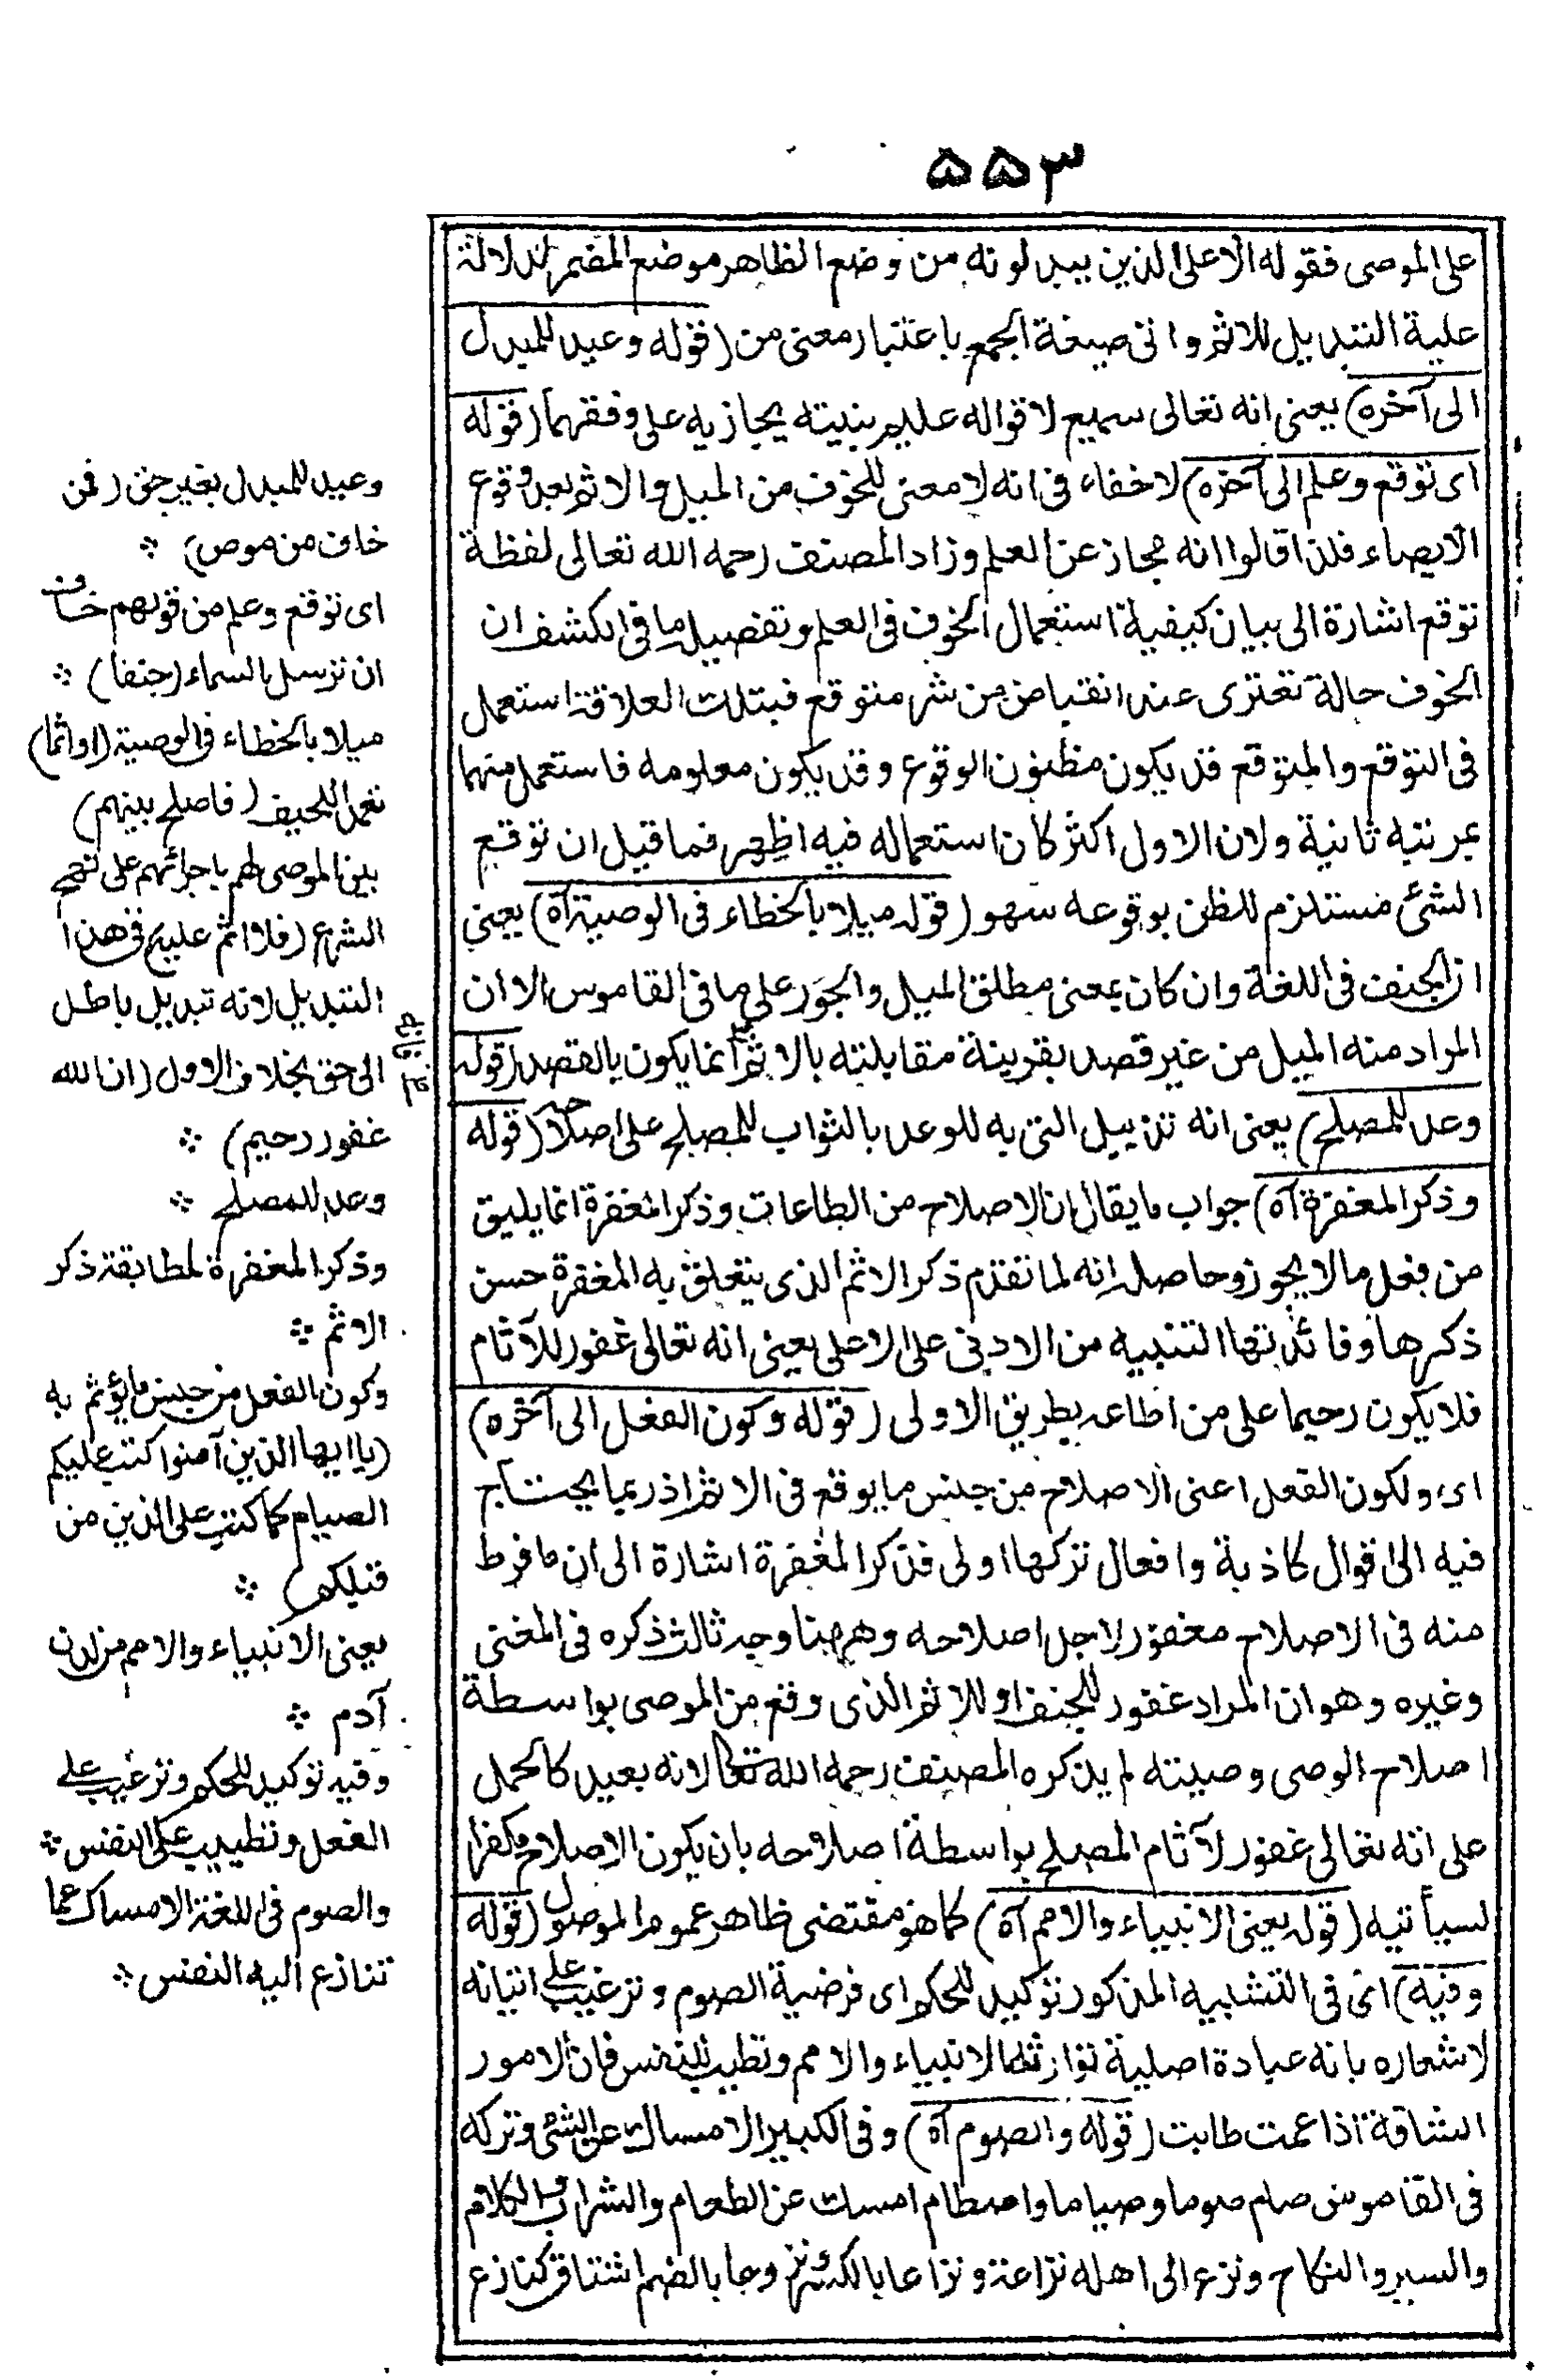 ٥٥٣
على الموصى فقوله الا على الذين يبدلونه من وضع الظاهر موضع المضمر للدلالة
علية التبديل للاثم واتى صيغة الجمع باعتبار معنى من (قوله وعيد للمبدل
الى آخره) يعنى انه تعالى سميع لاقواله عليم بنيته يجازيه على وفقهما (قوله
اى توقع وعلم الى آخره) لا خفاء فى انه لا معنى للخوف من الميل والاثم بعد وقوع
الايصاء فلذا قالوا انه مجاز عن العلم وزاد المصنف رحمه الله تعالى لفظة
توقع اشارة الى بيان كيفية استعمال الخوف فى العلم وتفصيله ما فى الكشف ان
الخوف حالة تعترى عند انقباض من شر متوقع فبتلك العلاقة استعمل
فى التوقع والمتوقع قد يكون مظنون الوقوع وقد يكون معلومه فاستعمل منهما
بمرتبه ثانية ولان الاول اكثر كان استعماله فيه اظهر فما قيل ان توقع
الشئ مستلزم للظن بوقوعه سهو (قوله ميلا بالخطاء فى الوصية آه) يعنى
ان الجنف فى اللغة وان كان بمعنى مطلق الميل والجور على ما فى القاموس الا ان
المراد منه الميل من غير قصد بقرينة مقابلته بالاثم انما يكون بالقصد (قوله
وعد للمصلح) يعنى انه تذييل اتى به للوعد بالثواب للمصلح على اصلاحه (قوله
وذكر المغفرة آه) جواب ما يقال ان الاصلاح من الطاعات وذكر المغفرة انما يليق
من فعل ما لا يجوز وحاصله انه لما تقدم ذكر الاثم الذى يتعلق به المغفرة حسن
ذكرها وفائدتها التنبيه من الادنى على الاعلى يعنى انه تعالى غفور للآثام
فلا يكون رحيما على من اطاعه بطريق الاولى (قوله وكون الفعل الى آخره)
اى ولكون الفعل اعنى الاصلاح من جنس ما يوقع فى الاثم اذ ربما يحتاج
فيه الى اقوال كاذبة وافعال تركها اولى فذكر المغفرة اشارة الى ان ما فرط
منه فى الاصلاح مغفور لاجل اصلاحه وههنا وجه ثالث ذكره فى المغنى
وغيره وهو ان المراد غفور للجنف او للاثم الذى وقع من الموصى بواسطة
اصلاح الوصى وصيته لم يذكره المصنف رحمه الله تعالى لانه بعيد كالحمل
على انه تعالى غفور لآثام المصلح بواسطة اصلاحه بان يكون الاصلاح مكفرا
لسيأتيه (قوله يعنى الانبياء والامم آه) كما هو مقتضى ظاهر عموم الموصول (قوله
وفيه) اى فى التشبيه المذكور توكيد للحكم اى فرضية الصوم وترغيب على اتيانه
لاشعاره بانه عبادة اصلية توارثها الانبياء والامم وتطييب للنفس فان الامور
الشاقة اذا عمت طابت (قوله والصوم آه) وفى الكبير الامساك عن الشئ وتركه
فى القاموس صام صوما وصياما واصطام امسك عن الطعام والشراب والكلام
والسير والنكاح ونزع الى اهله نزاعة ونزاعا بالكسر ونزوعا بالضم اشتاق كنازع
وعيد للمبدل بغير حق (فمن
خاف من موص) ❖
اى توقع وعلم من قولهم خاف
ان ترسل السماء (جنفا) ❖
ميلا بالخطاء فى الوصية (او اثما)
تعمد اللحيف (فاصلح بينهم)
بين الموصى لهم باجرائهم على نهج
الشرع (فلا اثم عليه) فى هذا
التبديل لانه تبديل باطل
الى حق بخلاف الاول (ان الله
غفور رحيم) ❖
وعد للمصلح ❖
وذكر المغفرة لمطابقة ذكر
الاثم ❖
وكون الفعل من جنس ما يؤثم به
(يا ايها الذين آمنوا كتب عليكم
الصيام كما كتب على الذين من
قبلكم) ❖
يعنى الانبياء والامم من لدن
آدم ❖
وفيه توكيد للحكم وترغيب على
الفعل وتطييب على النفس ❖
والصوم فى اللغة الامساك عما
تنازع اليه النفس ❖